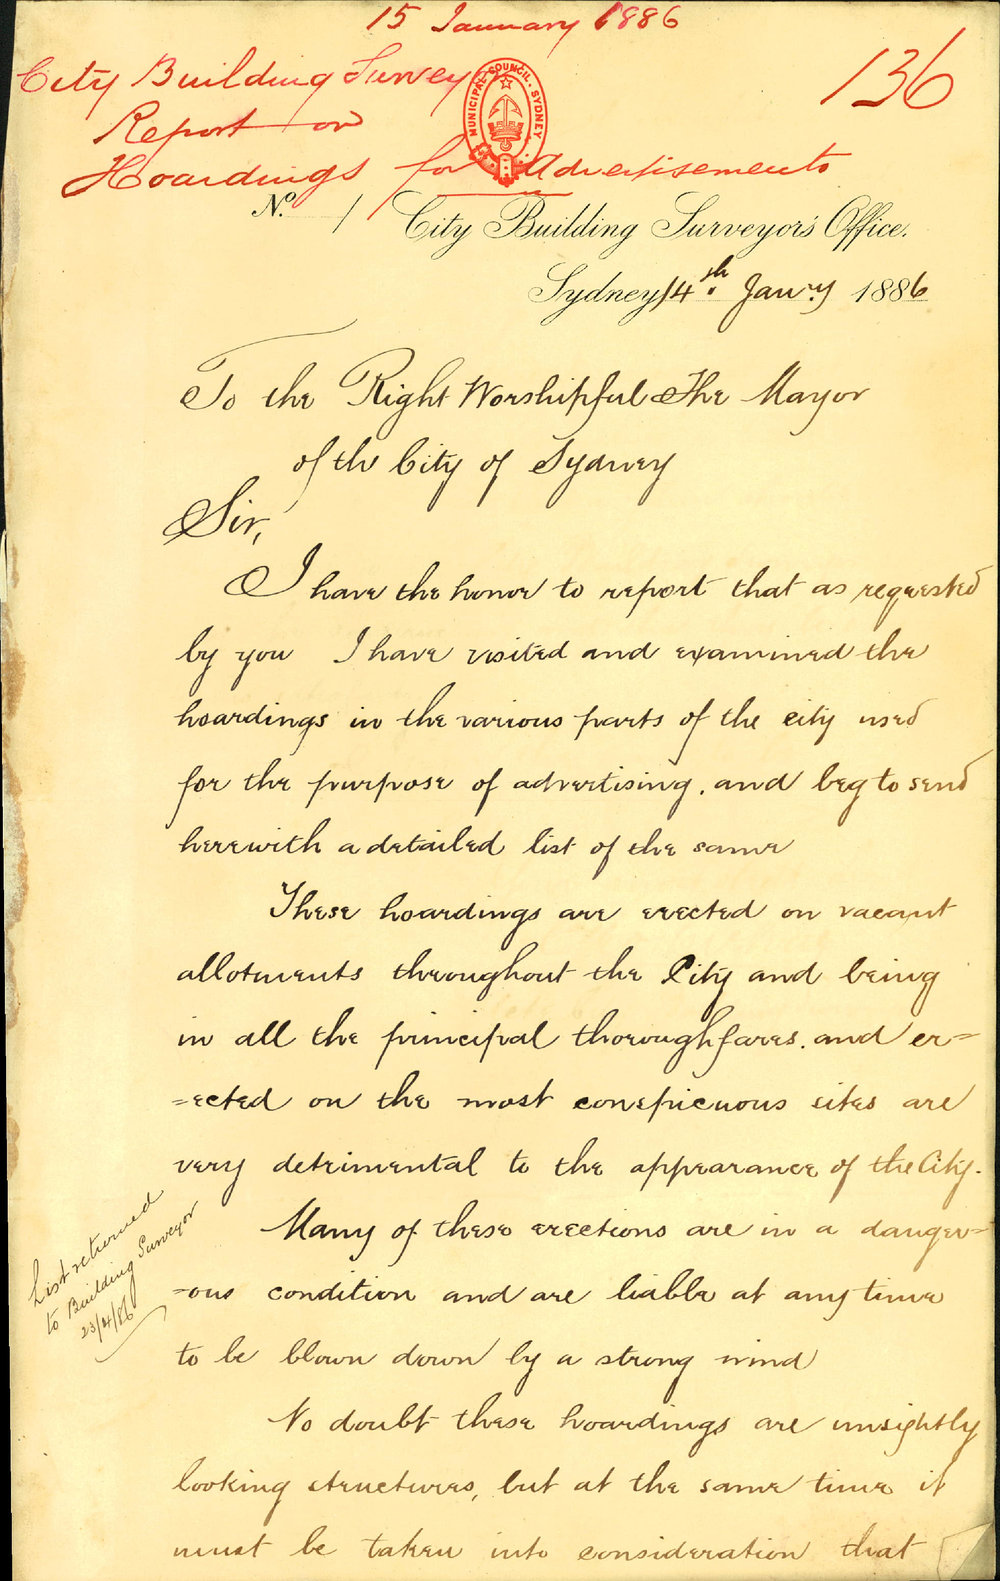 15 January 1886
136
City Building Survey
Report on
Hoardings for Advertisements
MUNICIPAL COUNCIL. SYDNEY
No. 1 City Building Surveyor's Office.
Sydney 14th. Jany 1886
To the Right Worshipful The Mayor
of the City of Sydney
Sir,
I have the honor to report that as requested
by you I have visited and examined the
hoardings in the various parts of the city used
for the purpose of advertising. and beg to send
herewith a detailed list of the same
These hoardings are erected on vacant
allotments throughout the City and being
in all the principal thoroughfares. and er=
=ected on the most conspicuous sites are
very detrimental to the appearance of the City.
Many of these erections are in a danger=
=ous condition and are liable at any time
to be blown down by a strong wind
No doubt these hoardings are unsightly
looking structures, but at the same time it
must be taken into consideration that
List returned
to Building Surveyor
23/4/86